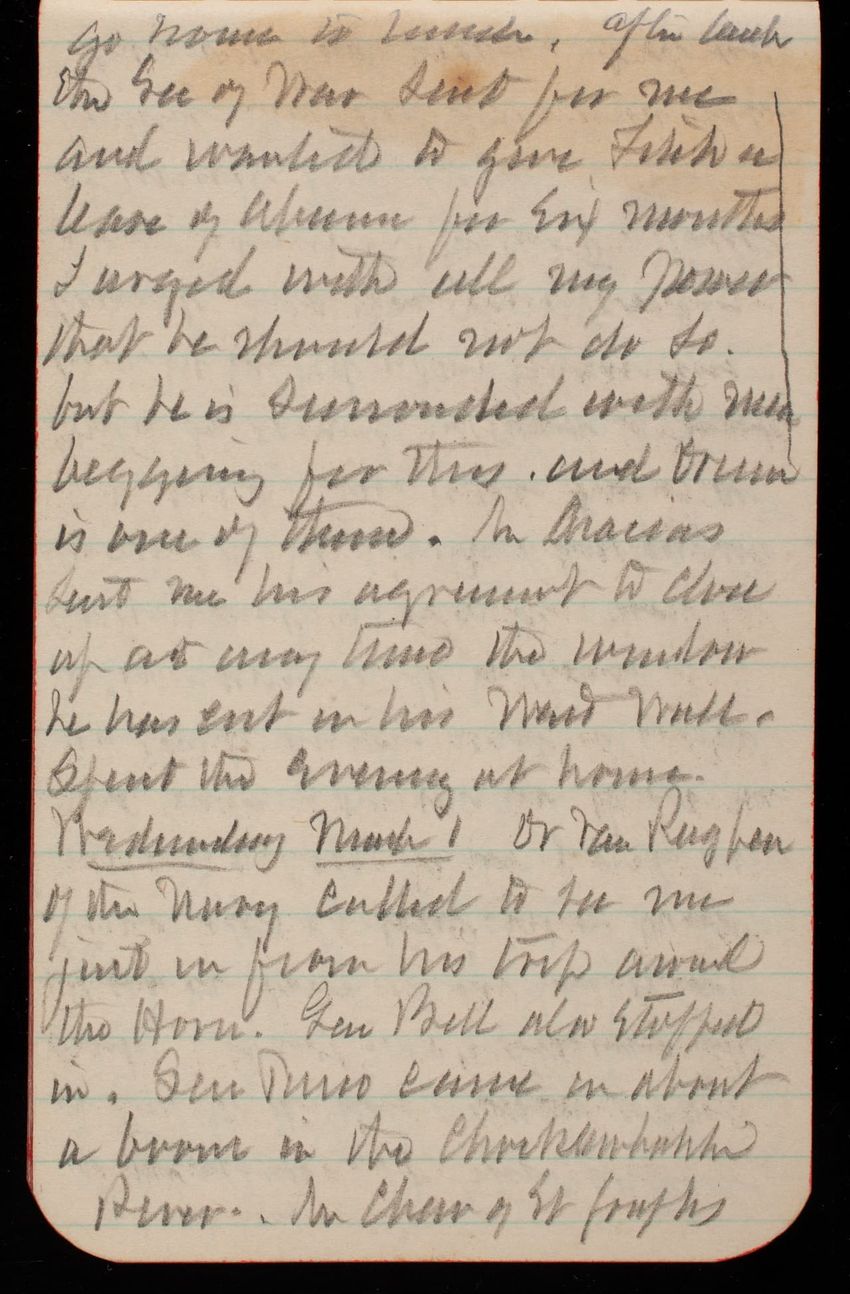 go home to lunch. After lunch
the Sec of War sent for me
and wanted to give Fitch a
leave of absence for six months
I urged with all my power
that he should not do so.
but he is surrounded with men
begging for this. and Drum
is one of them. Mr
sent me his agreement to close
up at any time the window
he has cut in his West Wall.
Spent the evening at home.
Wednesday March 1 Dr Van
of the Navy called to see me
just in from his trip around
the Horn. Gen Bell also stopped
in. Sen came in about
a boom in the
River. Mr of St Josephs